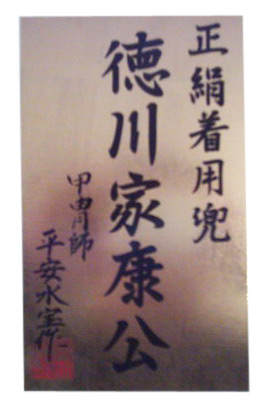 正絹着用兜
徳川家康公
甲冑師
平安水宝作